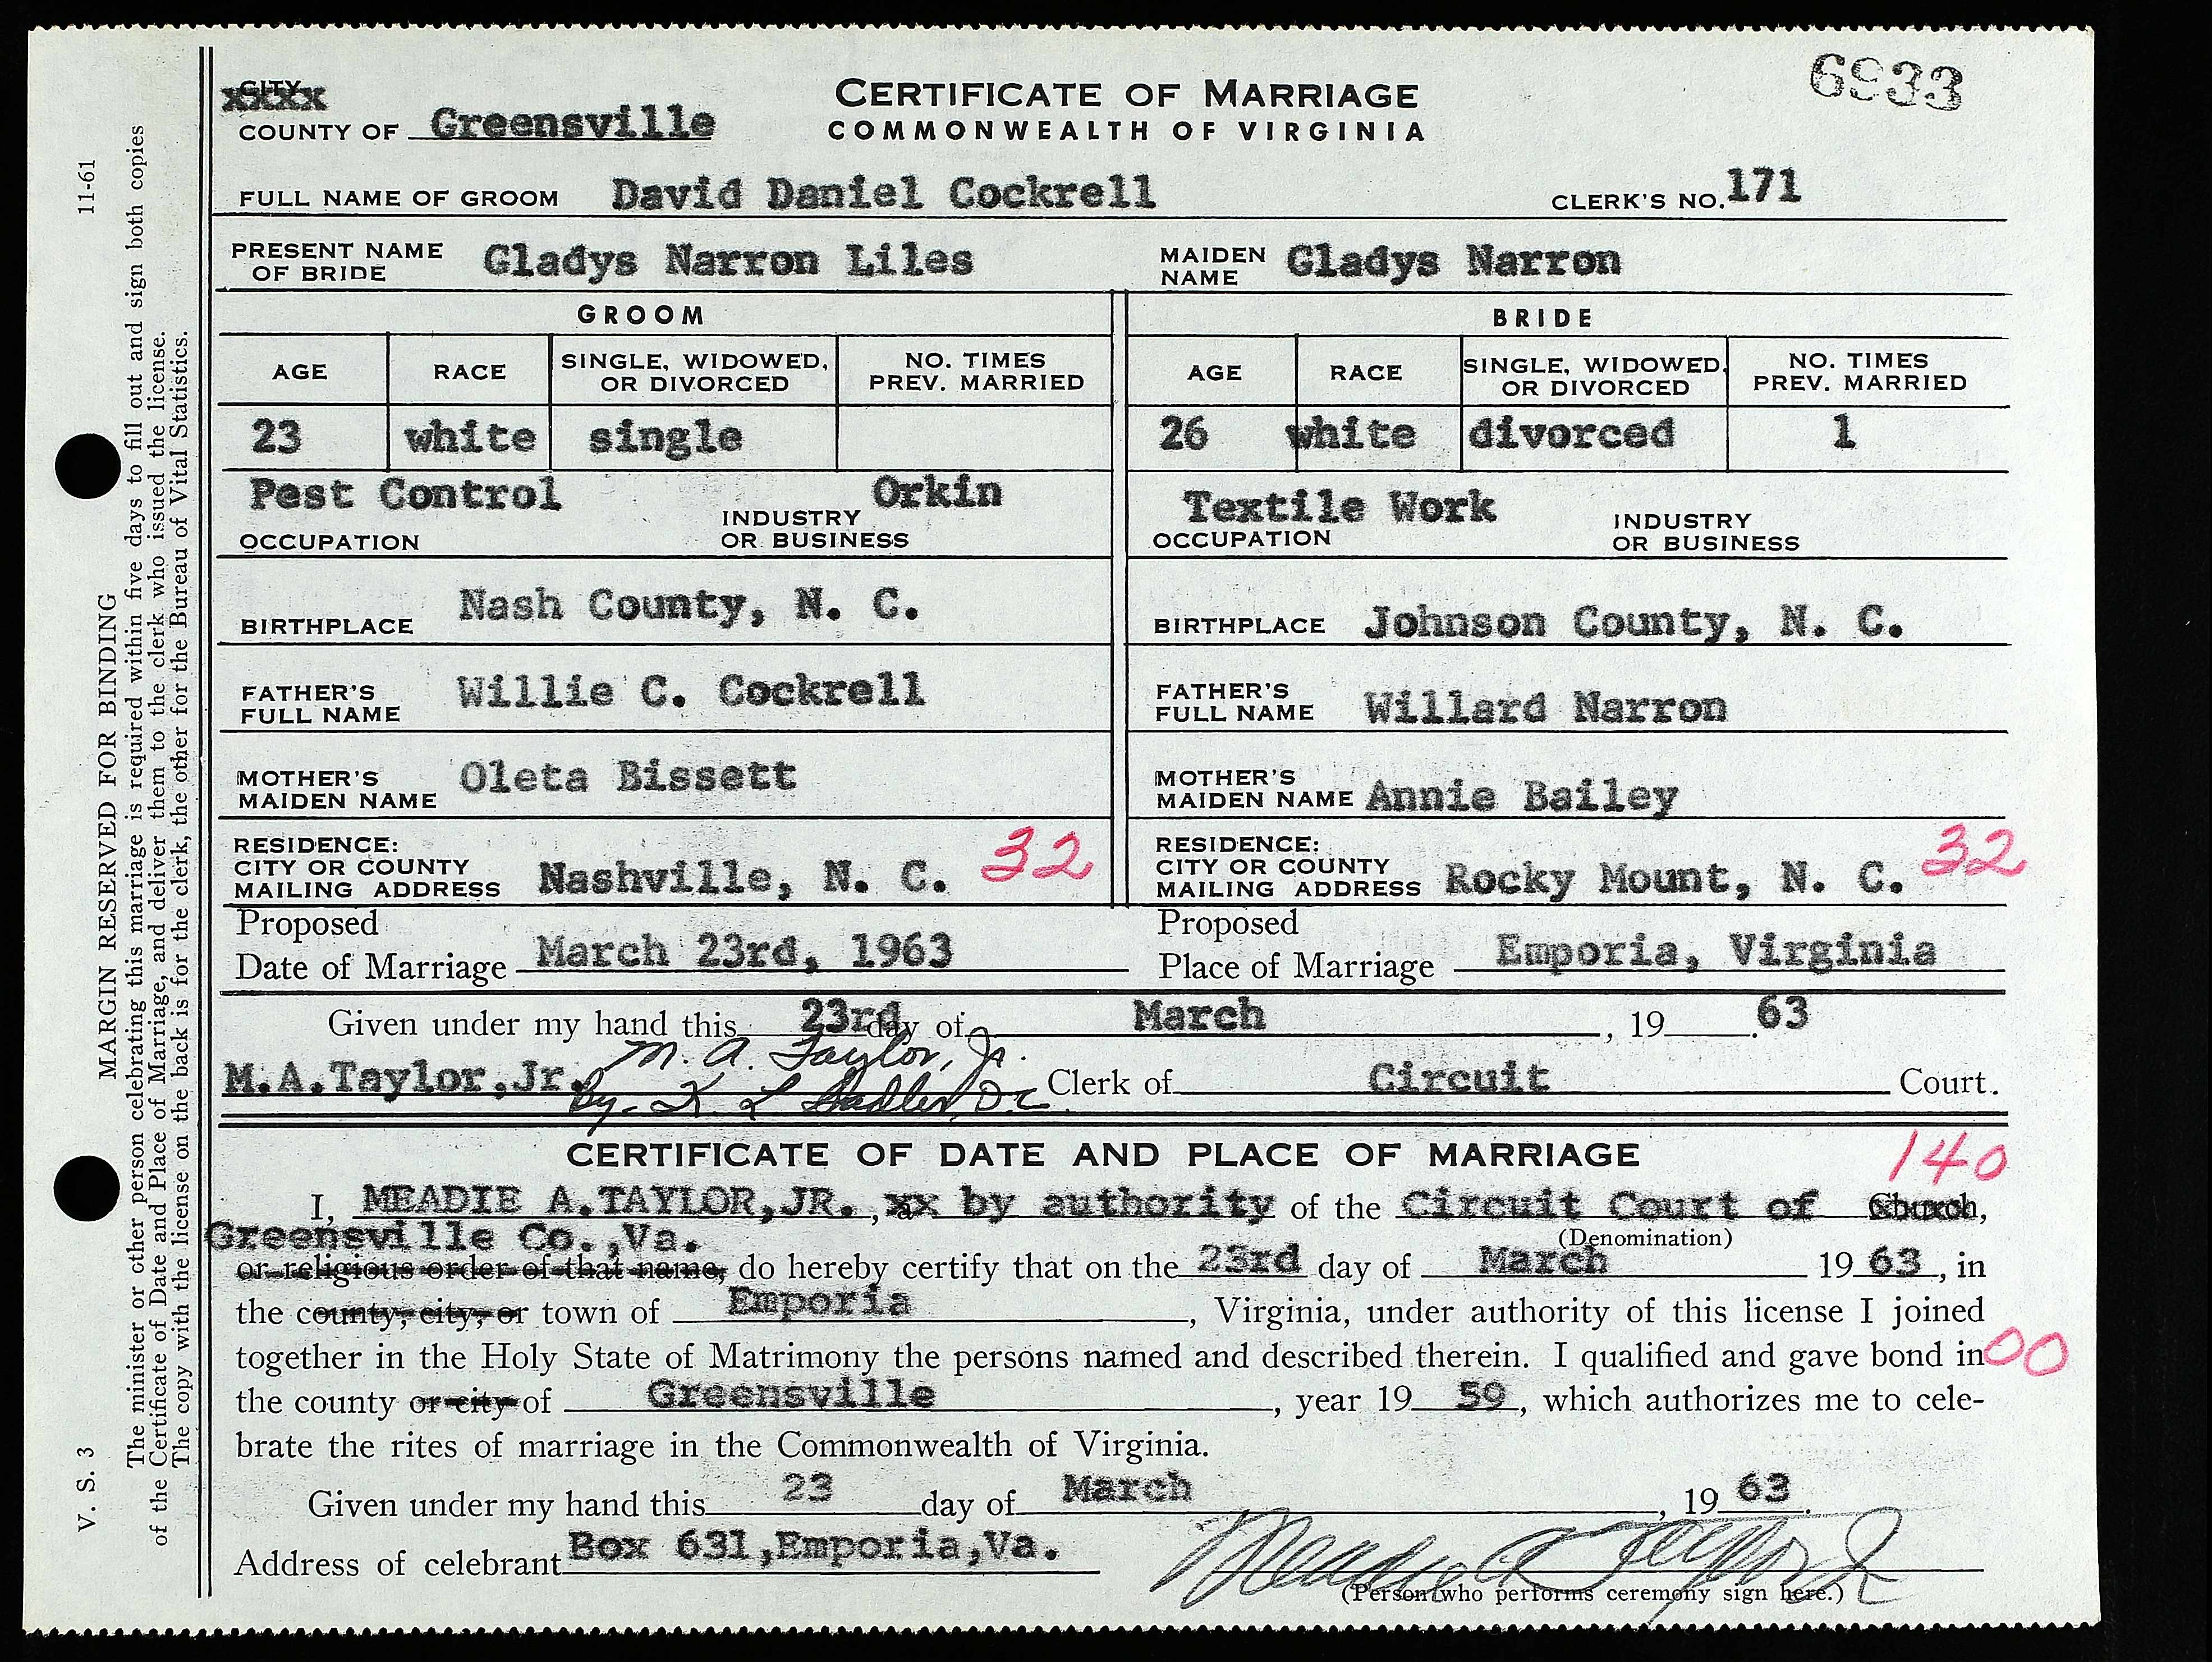 CITY xxxx
COUNTY OF Greensville
CERTIFICATE OF MARRIAGE
COMMONWEALTH OF VIRGINIA
6933
FULL NAME OF GROOM David Daniel Cockrell CLERK'S NO. 171
PRESENT NAME OF BRIDE Gladys Narron Liles MAIDEN NAME Gladys Narron
GROOM BRIDE
AGE RACE SINGLE, WIDOWED, OR DIVORCED NO. TIMES PREV. MARRIED AGE RACE SINGLE, WIDOWED, OR DIVORCED NO. TIMES PREV. MARRIED
23 white single 26 white divorced 1
Pest Control Orkin Textile Work
OCCUPATION INDUSTRY OR BUSINESS OCCUPATION INDUSTRY OR BUSINESS
BIRTHPLACE Nash County, N. C. BIRTHPLACE Johnson County, N. C.
FATHER'S FULL NAME Willie C. Cockrell FATHER'S FULL NAME Willard Narron
MOTHER'S MAIDEN NAME Oleta Bissett MOTHER'S MAIDEN NAME Annie Bailey
RESIDENCE: CITY OR COUNTY MAILING ADDRESS Nashville, N. C. 32 RESIDENCE: CITY OR COUNTY MAILING ADDRESS Rocky Mount, N. C. 32
Proposed Date of Marriage March 23rd, 1963 Proposed Place of Marriage Emporia, Virginia
Given under my hand this 23rd day of March, 19 63
M. A. Taylor, Jr.
M.A.Taylor,Jr. By- K L Sadler D.C. Clerk of Circuit Court.
CERTIFICATE OF DATE AND PLACE OF MARRIAGE
140
I, MEADIE A.TAYLOR,JR., a xx by authority of the Circuit Court of Church,
Greensville Co.,Va. (Denomination)
or religious order of that name, do hereby certify that on the 23rd day of March 19 63, in
the county, city, or town of Emporia, Virginia, under authority of this license I joined
together in the Holy State of Matrimony the persons named and described therein. I qualified and gave bond in 00
the county or city of Greensville, year 19 59, which authorizes me to cele-
brate the rites of marriage in the Commonwealth of Virginia.
Given under my hand this 23 day of March, 19 63.
Address of celebrant Box 631,Emporia,Va. Meadie A Taylor Jr
(Person who performs ceremony sign here.)
V. S. 3 11-61
MARGIN RESERVED FOR BINDING
The minister or other person celebrating this marriage is required within five days to fill out and sign both copies
of the Certificate of Date and Place of Marriage, and deliver them to the clerk who issued the license.
The copy with the license on the back is for the clerk, the other for the Bureau of Vital Statistics.